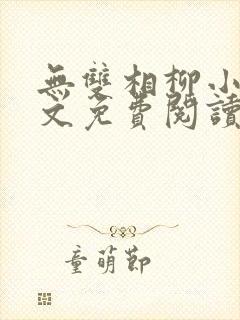 無雙相柳小
文免費閱讀
童萌節